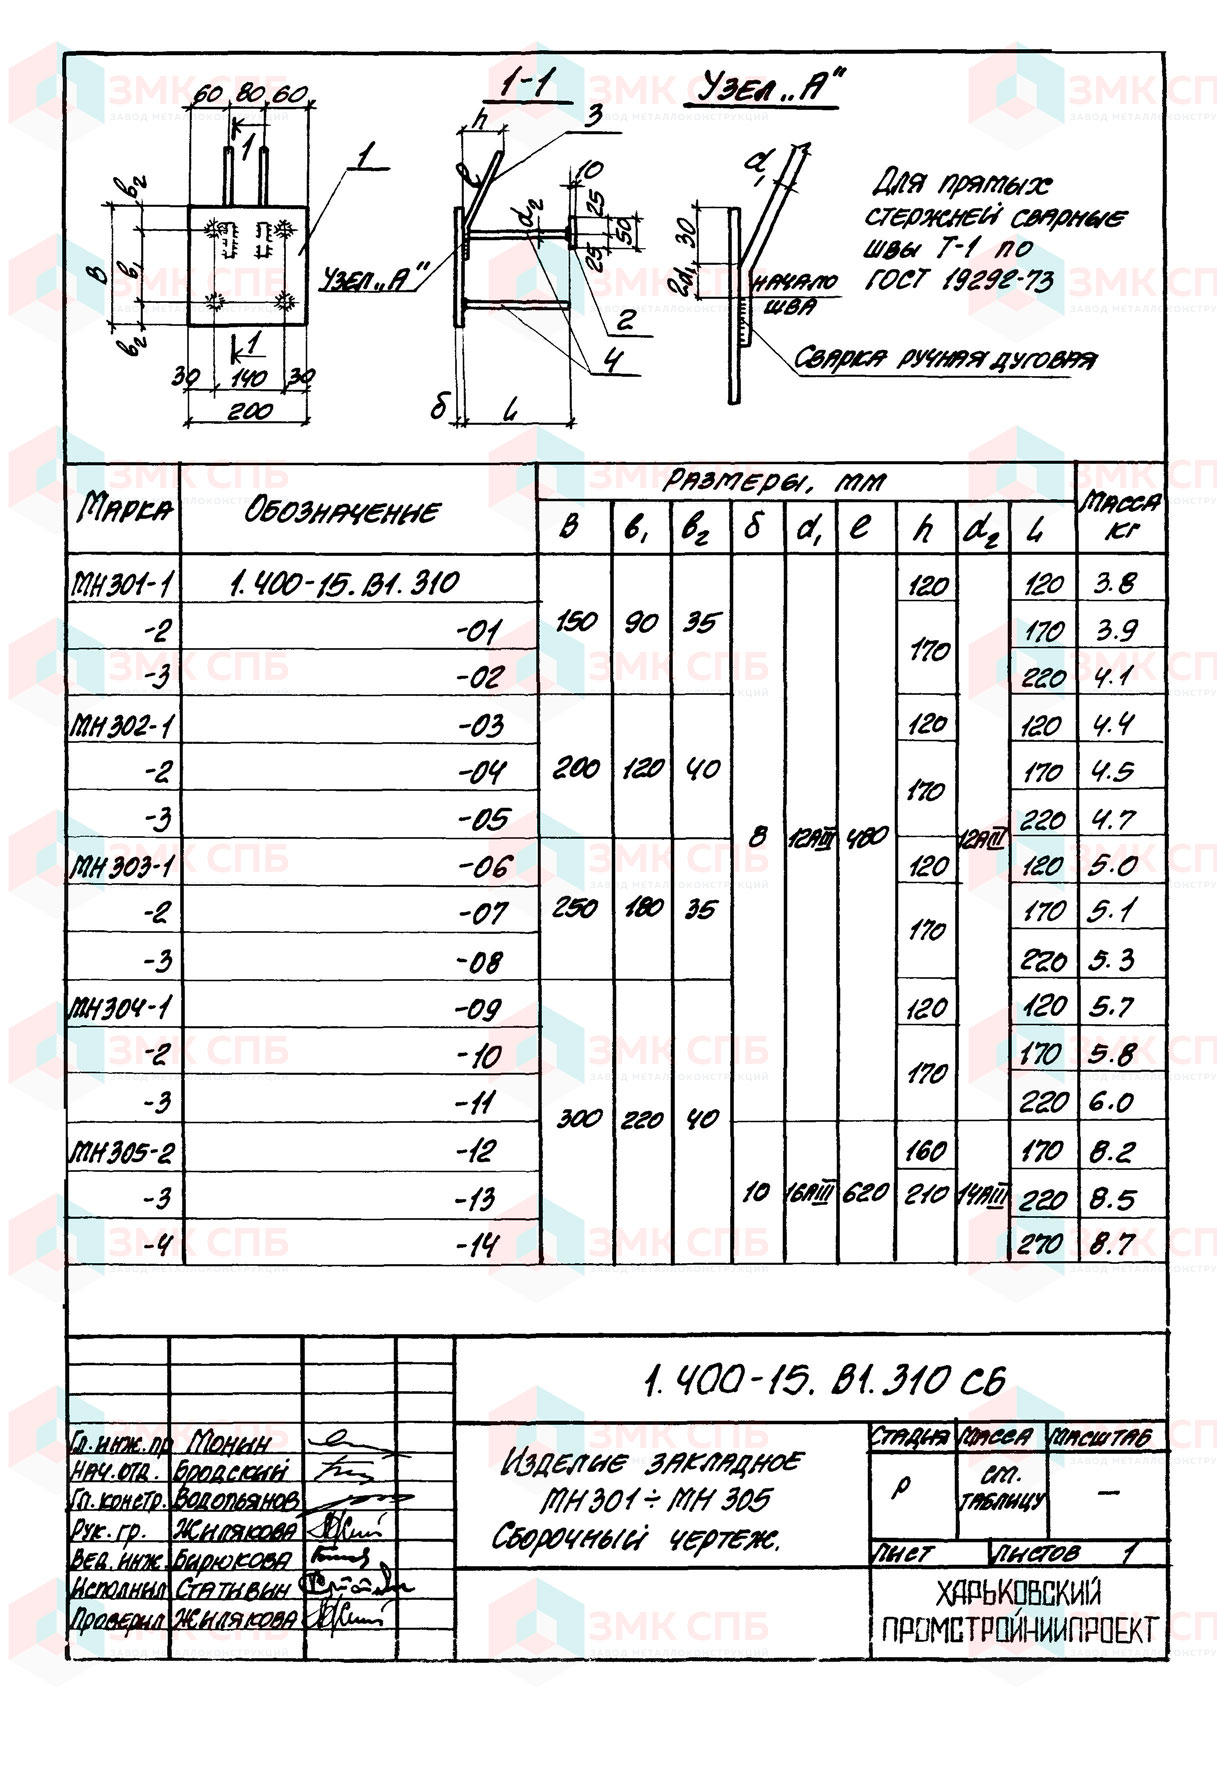 1-1
Узел „А"
60 80 60
1
1
в2
В
в1
в2
30 140 30
200
1
h
3
l
d2
10
25
50
25
Узел „А"
2
4
б
L
d1
30
2d1
начало
шва
Сварка ручная дуговая
Для прямых
стержней сварные
швы Т-1 по
ГОСТ 19292-73
Марка Обозначение Размеры, мм Масса кг
В в1 в2 б d1 l h d2 L
МН301-1 1.400-15.В1.310 150 90 35 8 12АIII 480 120 12АIII 120 3.8
-2 -01 170 170 3.9
-3 -02 220 4.1
МН302-1 -03 200 120 40 120 120 4.4
-2 -04 170 170 4.5
-3 -05 220 4.7
МН303-1 -06 250 180 35 120 120 5.0
-2 -07 170 170 5.1
-3 -08 220 5.3
МН304-1 -09 300 220 40 120 120 5.7
-2 -10 170 170 5.8
-3 -11 220 6.0
МН305-2 -12 10 16АIII 620 160 14АIII 170 8.2
-3 -13 210 220 8.5
-4 -14 270 8.7
1.400-15.В1.310 СБ
Гл.инж.пр Монин
Нач.отд. Бродский
Гл.констр. Водопьянов
Рук.гр. Жилякова
Вед.инж. Бирюкова
Исполнил Статывин
Проверил Жилякова
Изделие закладное
МН301÷МН305
Сборочный чертеж.
Стадия Масса Масштаб
Р см. таблицу —
Лист Листов 1
ХАРЬКОВСКИЙ
ПРОМСТРОЙНИИПРОЕКТ
ЗМК СПБ
ЗАВОД МЕТАЛЛОКОНСТРУКЦИЙ